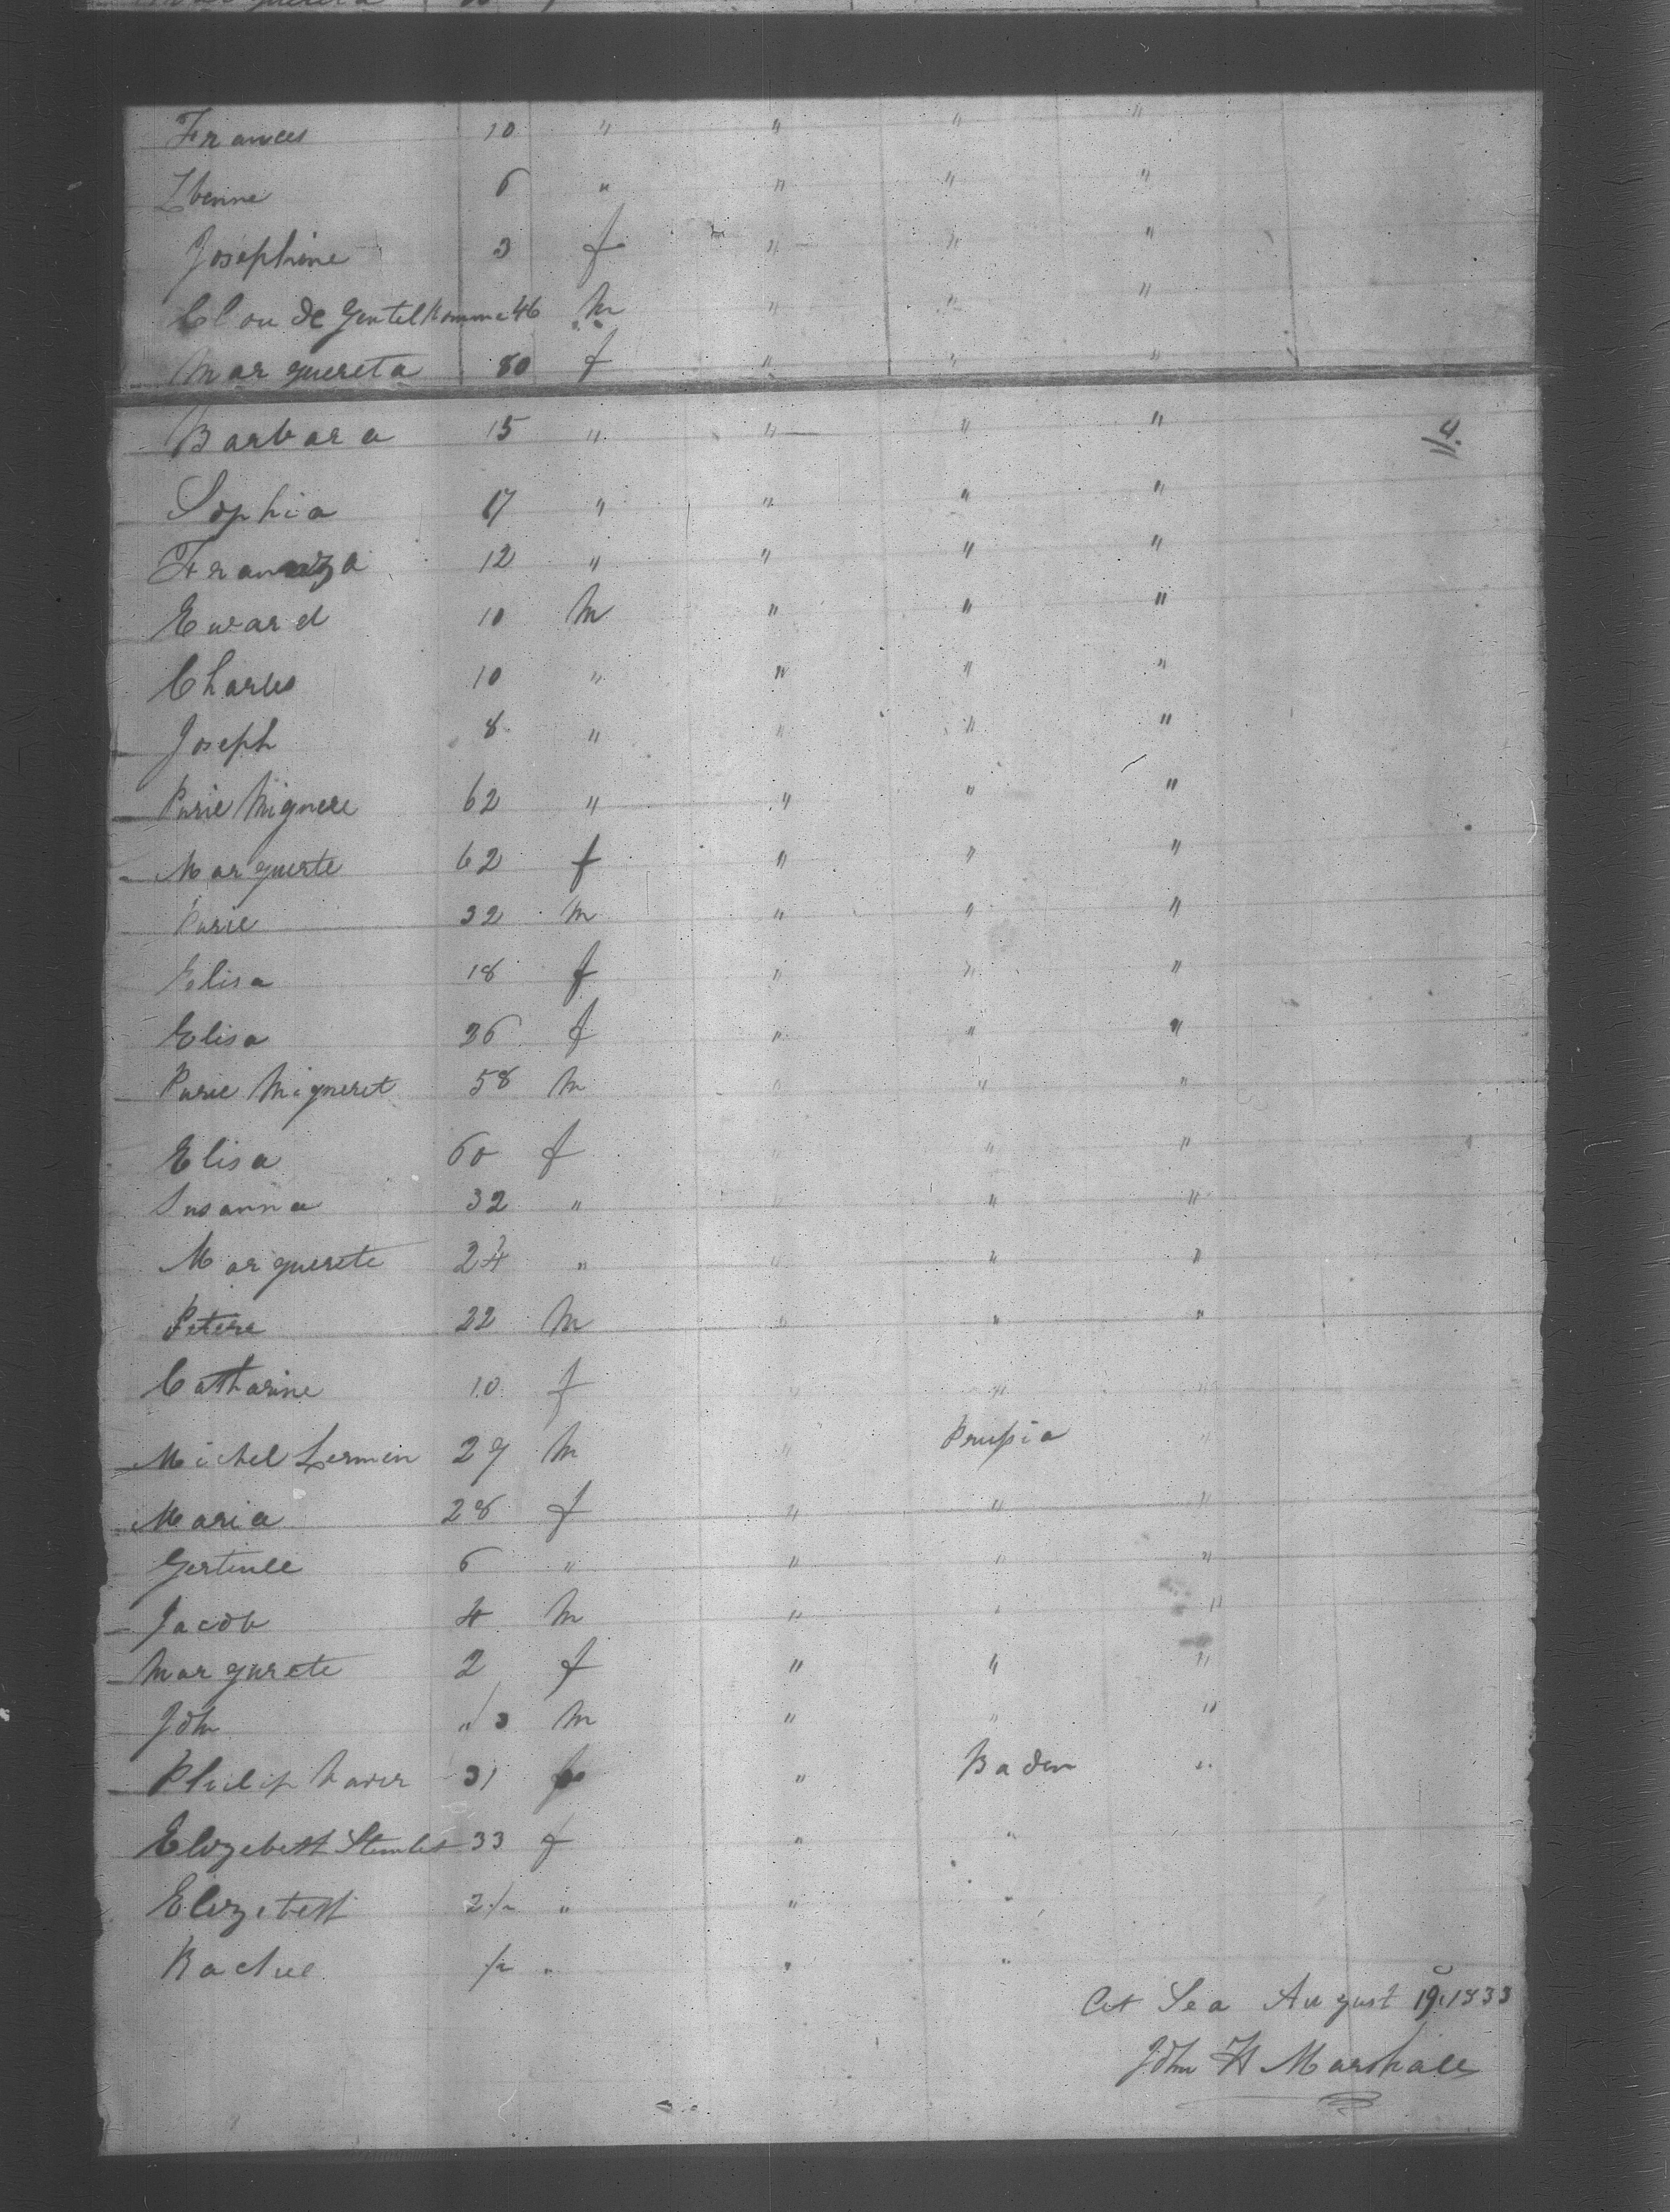 Frances 10 " " " "
6 " " " "
Josephine 3 f " " "
Clou de Gentelhomme 46 M " " "
Marguereta 80 f " " "
Barbara 15 " " " "
4.
Sophia 17 " " " "
12 " " " "
Eward 10 M " " "
Charles 10 " " " "
Joseph 8 " " " "
Purie Mignere 62 " " " "
Marguerte 62 f " " "
Purie 32 M " " "
Elisa 18 f " " "
Elisa 26 f " " "
Purie Migneret 58 M " " "
Elisa 60 f " " "
Susanna 32 " " " "
Marguerete 24 " " " "
Petere 22 M " " "
Catharine 10 f " " "
Michel Lermin 29 M " Prussia "
Maria 28 f " " "
6 " " " "
Jacob 4 M " " "
Margurete 2 f " " "
John M " " "
Philip 31 " Baden "
Elizebeth 33 f " "
Elizebeth 2 ½ " " "
Rachel ½ " " "
At Sea August 19. 1833
John H Marshall